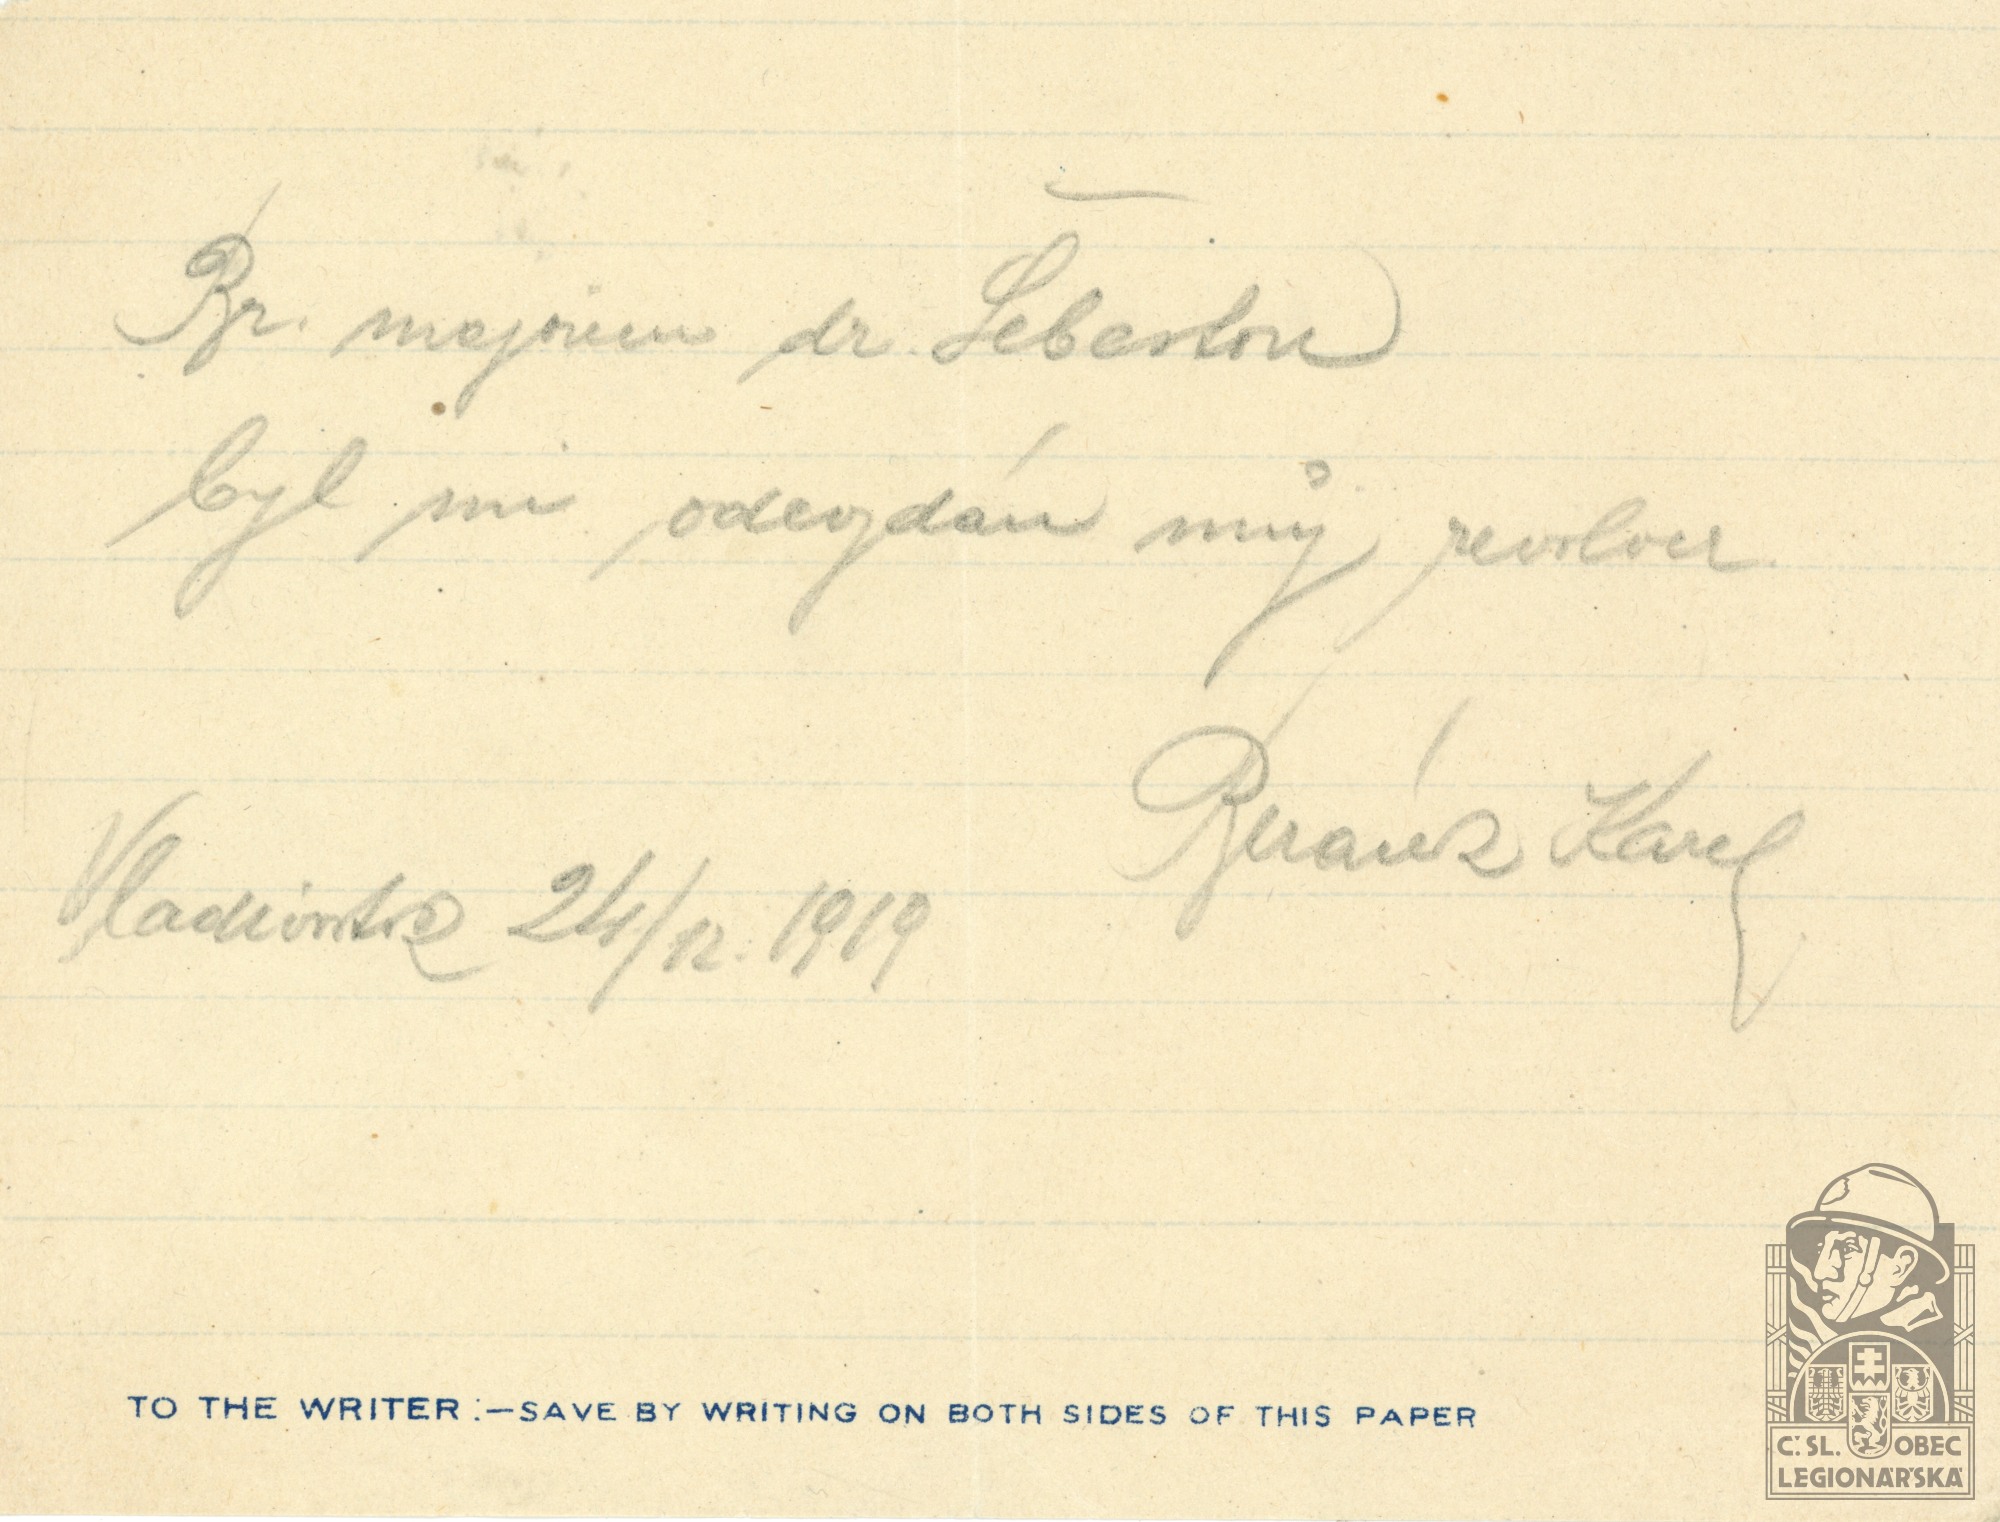 Br. majorem dr. Šebestou
byl mi odevzdán můj revolver
Beránek Karel
Vladivostok 24/12. 1919
TO THE WRITER:—SAVE BY WRITING ON BOTH SIDES OF THIS PAPER
Č. SL. OBEC
LEGIONÁŘSKÁ